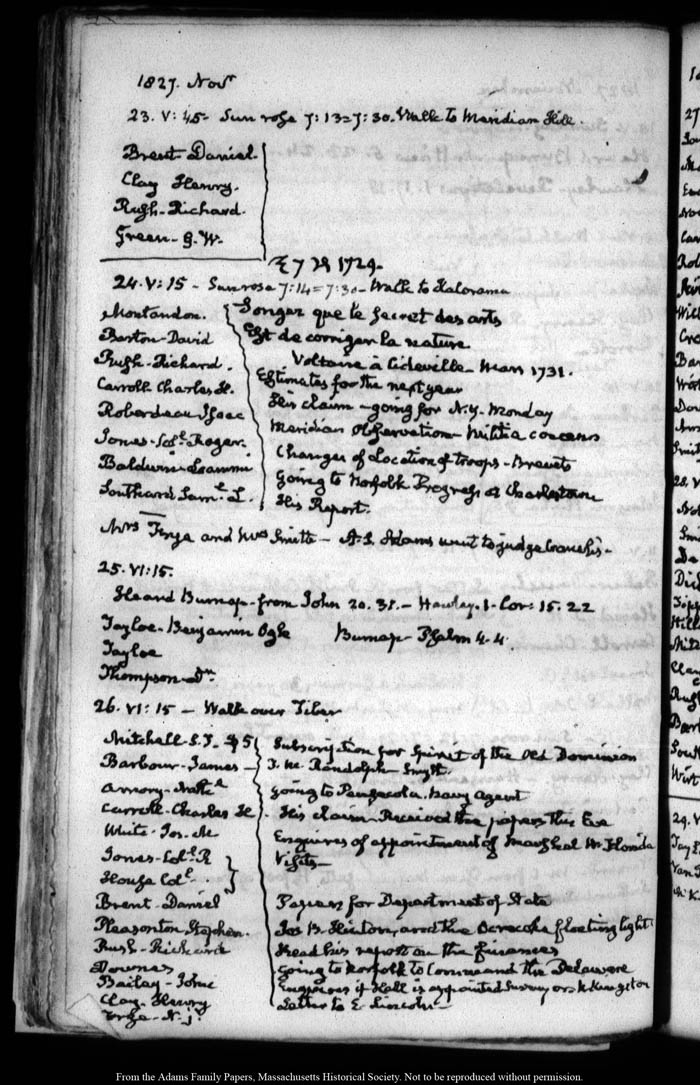 1827. Novr
23. V: 45- Sun rose 7:13=7:30. Walk to Meridian Hill.
Brent- Daniel.
Clay Henry.
Rush- Richard.
Green- G. W.
1729.
24. V: 15 - Sun rose 7:14=7:30- Walk to Kalorama
Montandon. Songez que le secret des arts
Barton- David Est de corriger la nature
Rush- Richard. Voltaire à Cideville- Mars 1731.
Carroll Charles H. Estimates for the next year
Roberdeau Isaac His claim - going for N.Y. Monday
Jones- Coll Roger. Meridian Observation- Militia concerns
Baldwin- Loammi Changes of Location of troops- Brevets
Southard Saml L. going to Norfolk Progress at Charlestown
His Report.
Mrs Frye and Mrs Smith - A. S. Adams went to judge Cranch's-
25. VI: 15.
and Burnap- from John 20. 31.- Hawley- 1. Cor: 15. 22
Tayloe- Benjamin Ogle Burnap- Psalm 4. 4.
Tayloe
Thompson- Dr.
26. VI: 15 - Walk over Tiber
Mitchell S. T. $5 Subscription for Spirit of the Old Dominion
Barbour- James- T. M. Randolph- Smyth.
Amory- going to Pensacola. Navy Agent
Carroll- Charles H. His claim- Received the papers this Eve
White- Jos. M Enquires of appointment of Marshal W. Florida
Jones- Coll R Visits-
House Coll.
Brent- Daniel Papers for Department of State
Pleasonton Stephen. Jos B. Hinton, and the Ocracoke floating light
Rush- Richard Read his report on the finances
Downes going to Norfolk to Command the Delaware
Bailey- John Enquires if Hall is appointed Survr or
Clay- Henry Letter to E. Lincoln-
Frye- N. jr
From the Adams Family Papers, Massachusetts Historical Society. Not to be reproduced without permission.